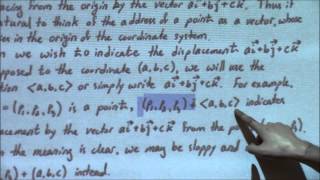 acing from the origin by the vector ai⃗+bj⃗+ck⃗. Thus it
atural to think of the address of a point as a vector, whose
es in the origin of the coordinate system.
n we wish to indicate the displacement ai⃗+bj⃗+ck⃗
pposed to the coordinate (a,b,c), we will use the
tion <a,b,c> or simply write ai⃗+bj⃗+ck⃗. For example,
= (P₁,P₂,P₃) is a point, (P₁,P₂,P₃) + <a,b,c> indicates
acement by the vector ai⃗+bj⃗+ck⃗ from the point
n the meaning is clear, we may be sloppy and
) + (a,b,c) instead.